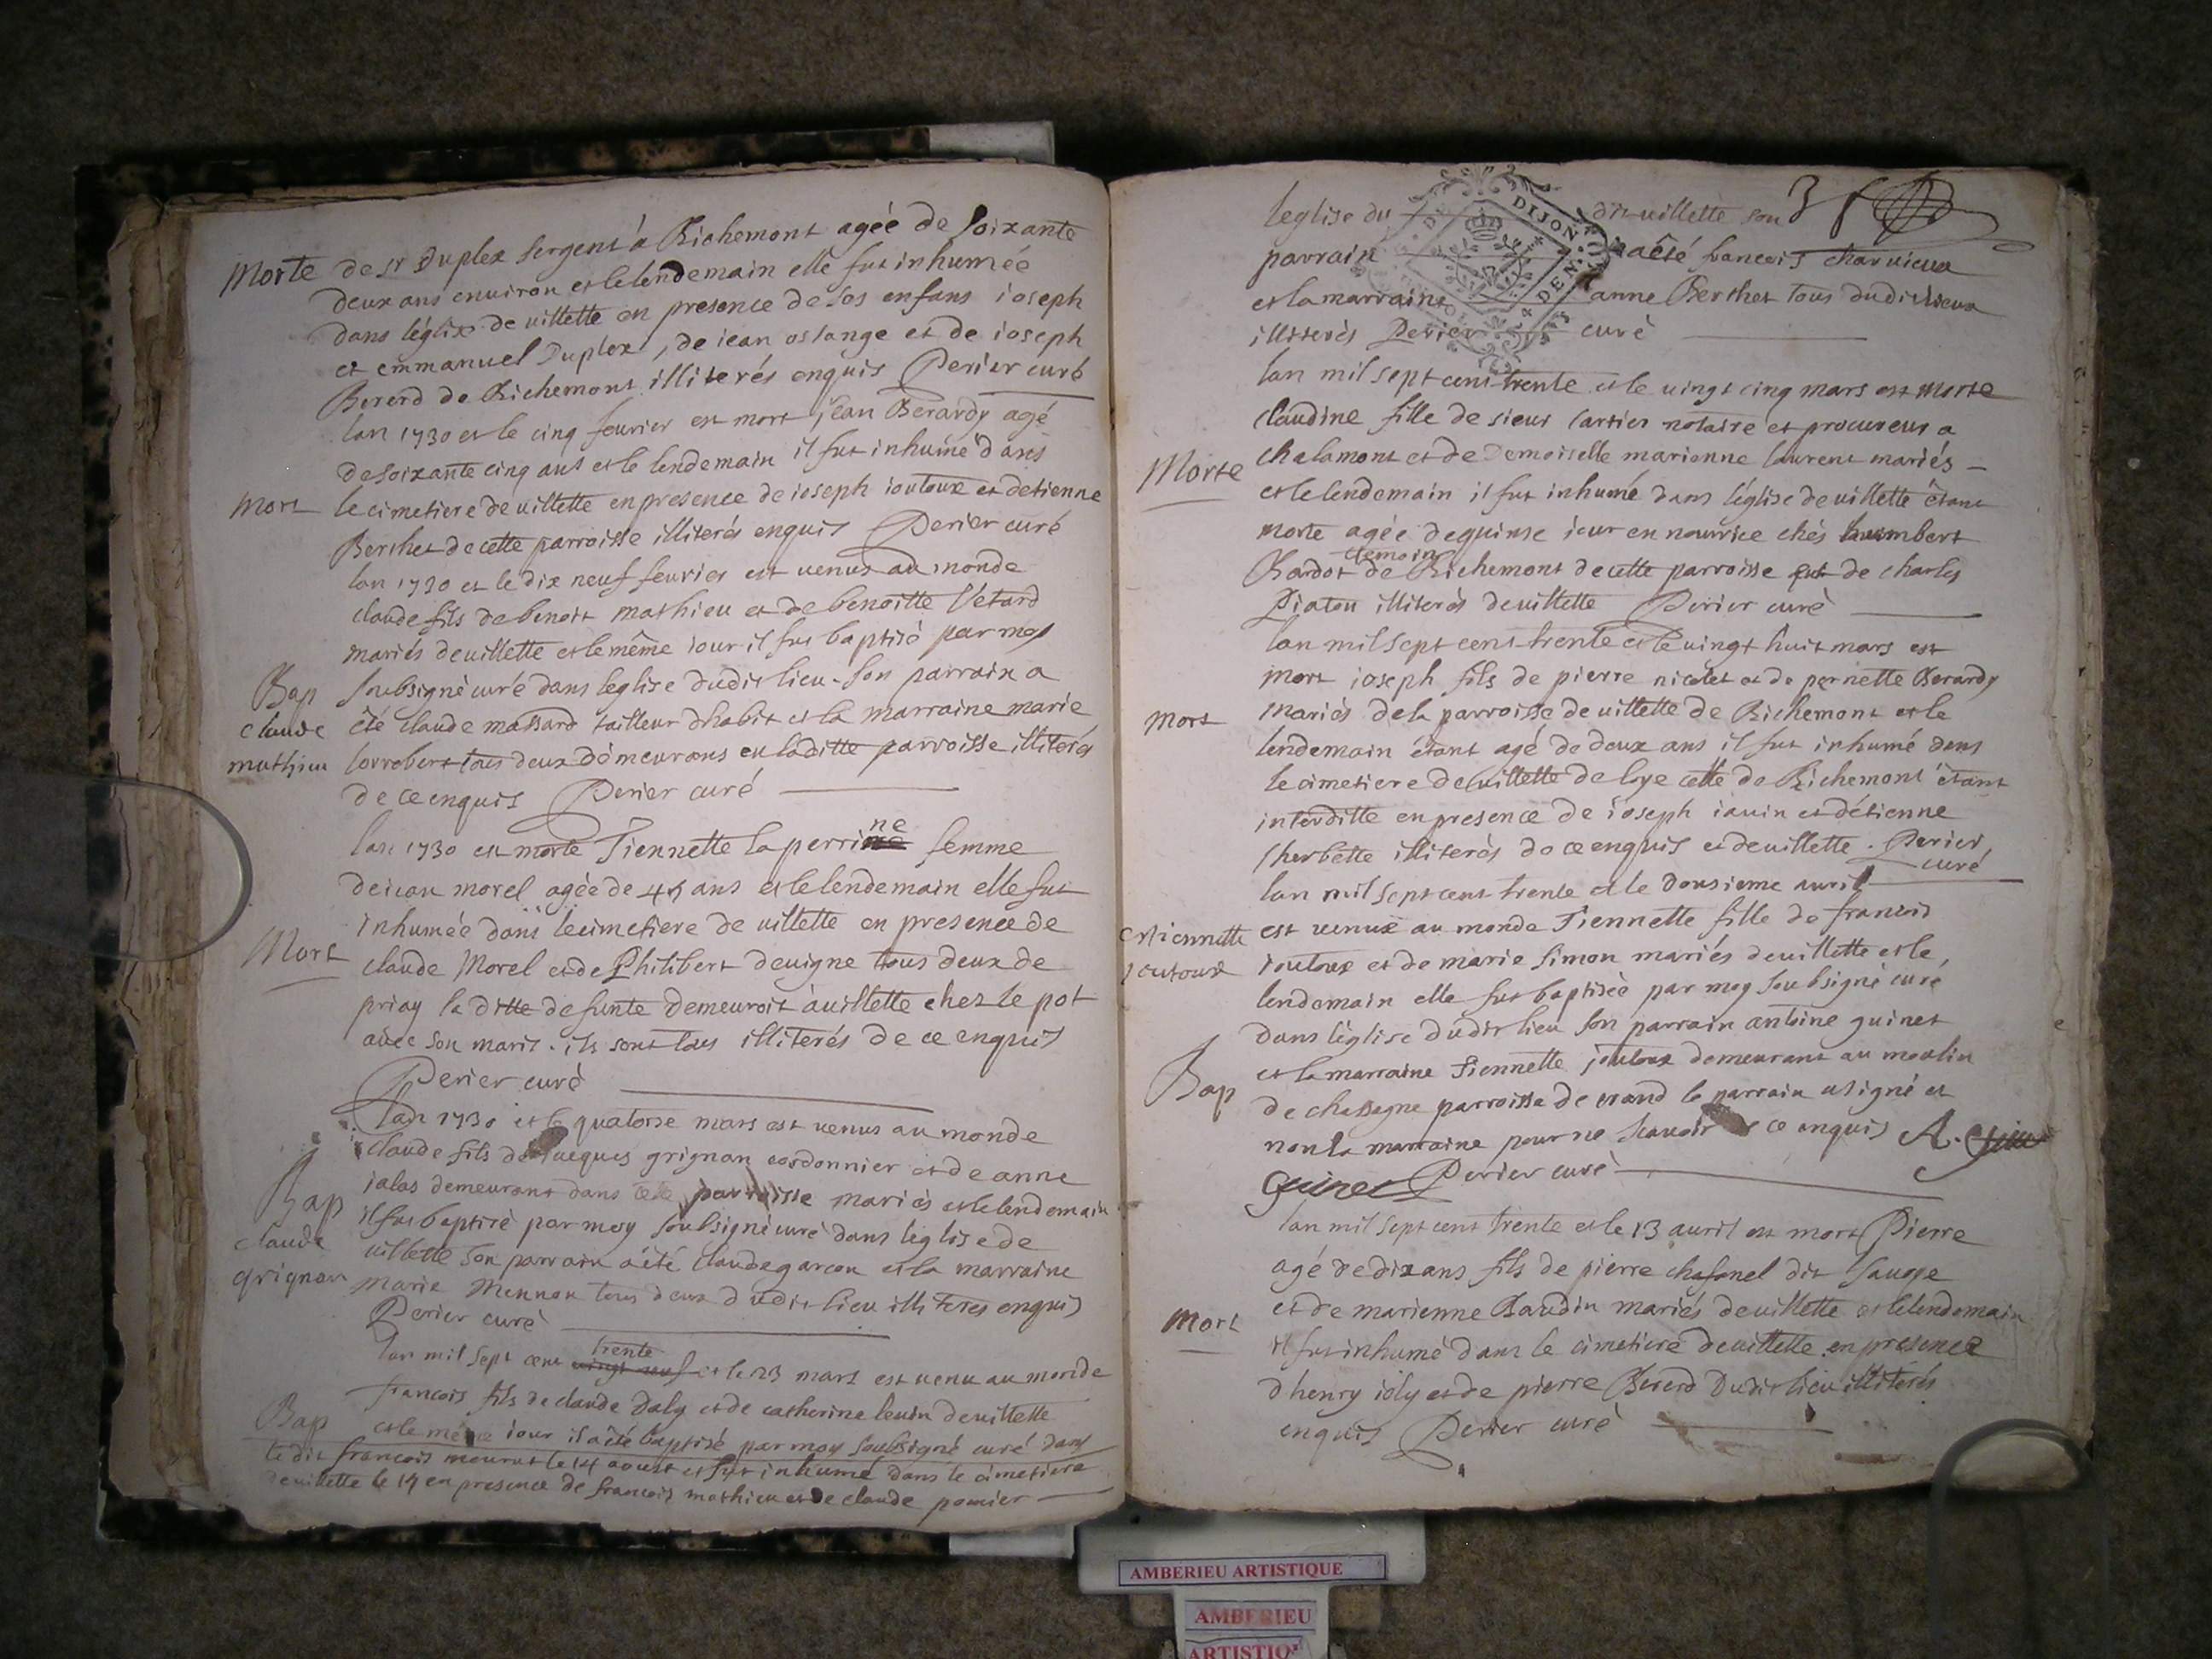 Morte
de sr Duplex sergent à Richemont agée de soixante
deux ans environ et le lendemain elle fut inhumée
dans léglise de villette en presence de ses enfans ioseph
et emmanuel Duplex, de iean oslange et de ioseph
Bererd de Richemont illiterés enquis Perier curé
lan 1730 et le cinq feurier est mort jean Berardy agé
de soixante cinq ans et le lendemain il fut inhumé dans
Mort
le cimetiere de villette en presence de ioseph ioutoux et detienne
Berthet de cette parroisse illiterés enquis Perier curé
lan 1730 et le dix neuf feurier est venus au monde
claude fils de benoit mathieu et de benoitte létard
mariés de villette et le même iour il fut baptisé par moy
Bap
claude
mathieu
soubsigné curé dans leglise dudit lieu. son parrain a
été claude massard tailleur dhabit et la marraine marie
lorrobert tous deux demeurans en laditte parroisse illiterés
de ce enquis Perier curé
lan 1730 est morte Tiennette la perrine femme
de iean morel agée de 45 ans et le lendemain elle fut
Mort
inhumée dans le cimetiere de villette en presence de
claude Morel et de Philibert devigne tous deux de
priay la ditte defunte demeuroit à villette chez le pot
avec son marit. ils sont tous illiterés de ce enquis
Perier curé
lan 1730 et le quatorse mars est venus au monde
claude fils de iacques grignon cordonnier et de anne
Bap
claude
grignon
ialas demeurant dans cete parroisse mariés et le lendemain
il fut baptisé par moy soubsigné curé dans leglise de
villette son parrain a été claude garcon et la marraine
marie Monnon tous deux dudit lieu illiteres enquis
Perier curé
trente
lan mil sept cent vingt neuf et le 23 mars est venu au monde
francois fils de claude Daly et de catherine levin de villette
Bap
et le même iour il a été baptisé par moy soubsigné curé dans
le dit francois mourut le 14 aoust et fut inhumé dans le cimetiere
de villette le 15 en presence de francois mathieu et de claude pomier
leglise du dit villette son 3
parrain a été francois charvieux
DIJON
et la marraine anne Berthet tous dudit lieux
illiterés Perier curé
lan mil sept cent trente et le vingt cinq mars est morte
claudine fille de sieur Cartier notaire et procureur a
Morte
chalamont et de Demoiselle marianne laurent mariés
et le lendemain il fut inhumé dans léglise de villette étant
morte agée de quinse iour en nourice chés humbert
temoin
Bardot de Richemont de cette parroisse et de charles
Piaton illiterés de villette Perier curé
lan mil sept cent trente et le vingt huit mars est
mort ioseph fils de pierre nicolet et de pernette Berardy
Mort
mariés de la parroisse de villette de Richemont et le
lendemain étant agé de deux ans il fut inhumé dans
le cimetiere de villette de loye cette de Richemont étant
interditte en presence de ioseph iavin et détienne
Cherbette illiterés de ce enquis et de villette. Perier
curé
lan mil sept cent trente et le dousieme avril
etiennette
ioutoux
est venüe au monde Tiennette fille de francois
ioutoux et de marie Simon mariés de villette et le
lendemain elle fut baptisée par moy soubsigné curé
Bap
dans léglise dudit lieu son parrain antoine guinet
et la marraine Tiennette ioutoux demeurant au moulin
de chassagne parroisse de crand le parrain a signé et
non la marraine pour ne scavoir de ce enquis A.
Guinet Perier curé
lan mil sept cent trente et le 13 avril est mort Pierre
agé de dix ans fils de pierre chafanel dit sauge
Mort
et de marienne Baudin mariés de villette et le lendemain
il fut inhumé dans le cimetiere de villette en presence
dhenry ioly et de pierre Bererd dudit lieu illiterés
enquis Perier curé
AMBERIEU ARTISTIQUE
AMBERIEU
ARTISTIQ